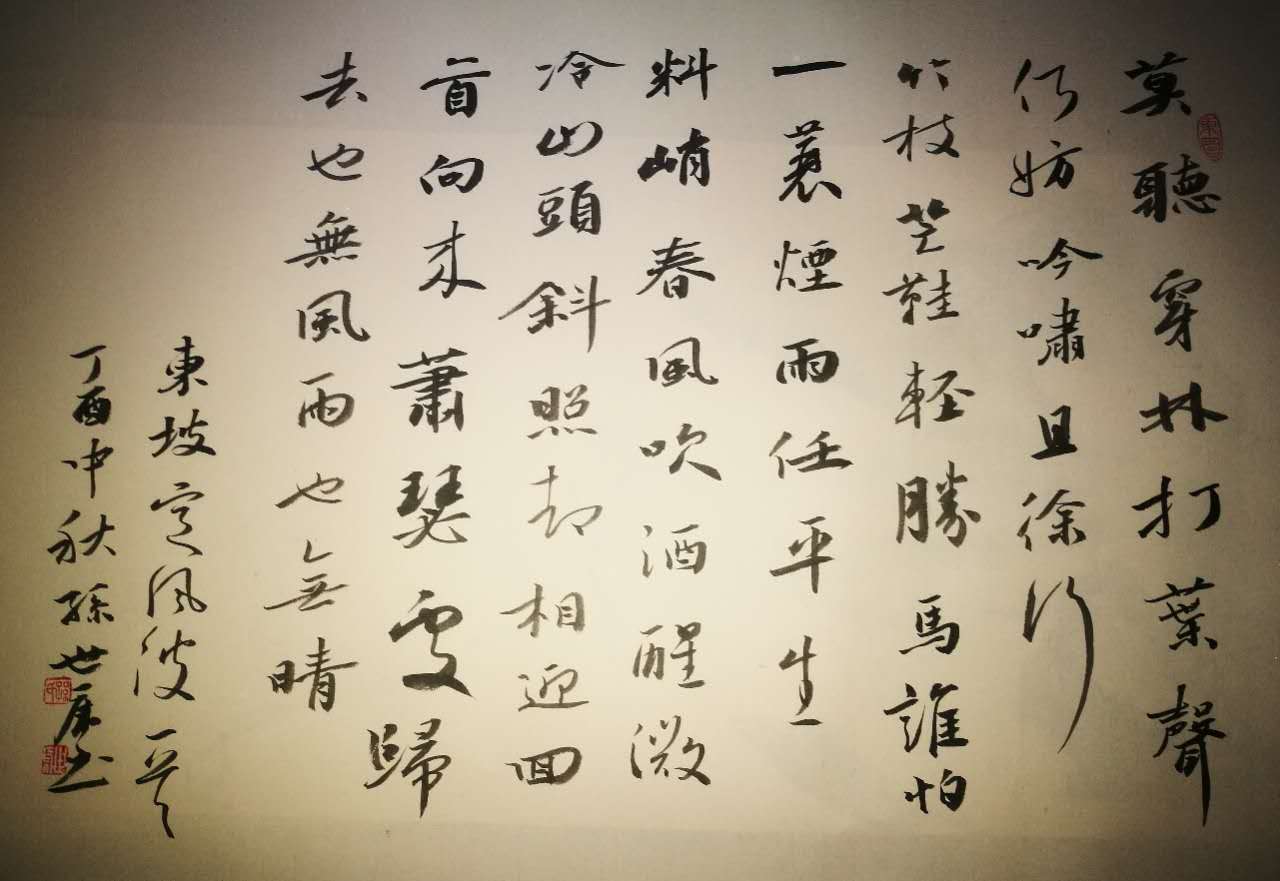 莫聽穿林打葉聲
何妨吟嘯且徐行
竹枝芒鞋輕勝馬誰怕
一蓑煙雨任平生
料峭春風吹酒醒微
冷山頭斜照却相迎回
首向来蕭瑟處歸
去也無風雨也無晴
東坡定風波一首
丁酉中秋孫世書